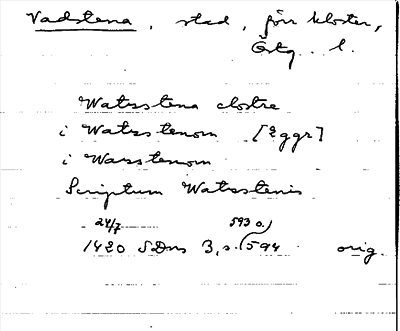 Vadstena, stad, förr kloster,
Östg. l.
Watzstena clostre
i Watzstenom [2 ggr]
i Warsstenom
Scriptum Watzstenis
24/7 593 o.
1420 SDns 3, s. 594 orig.